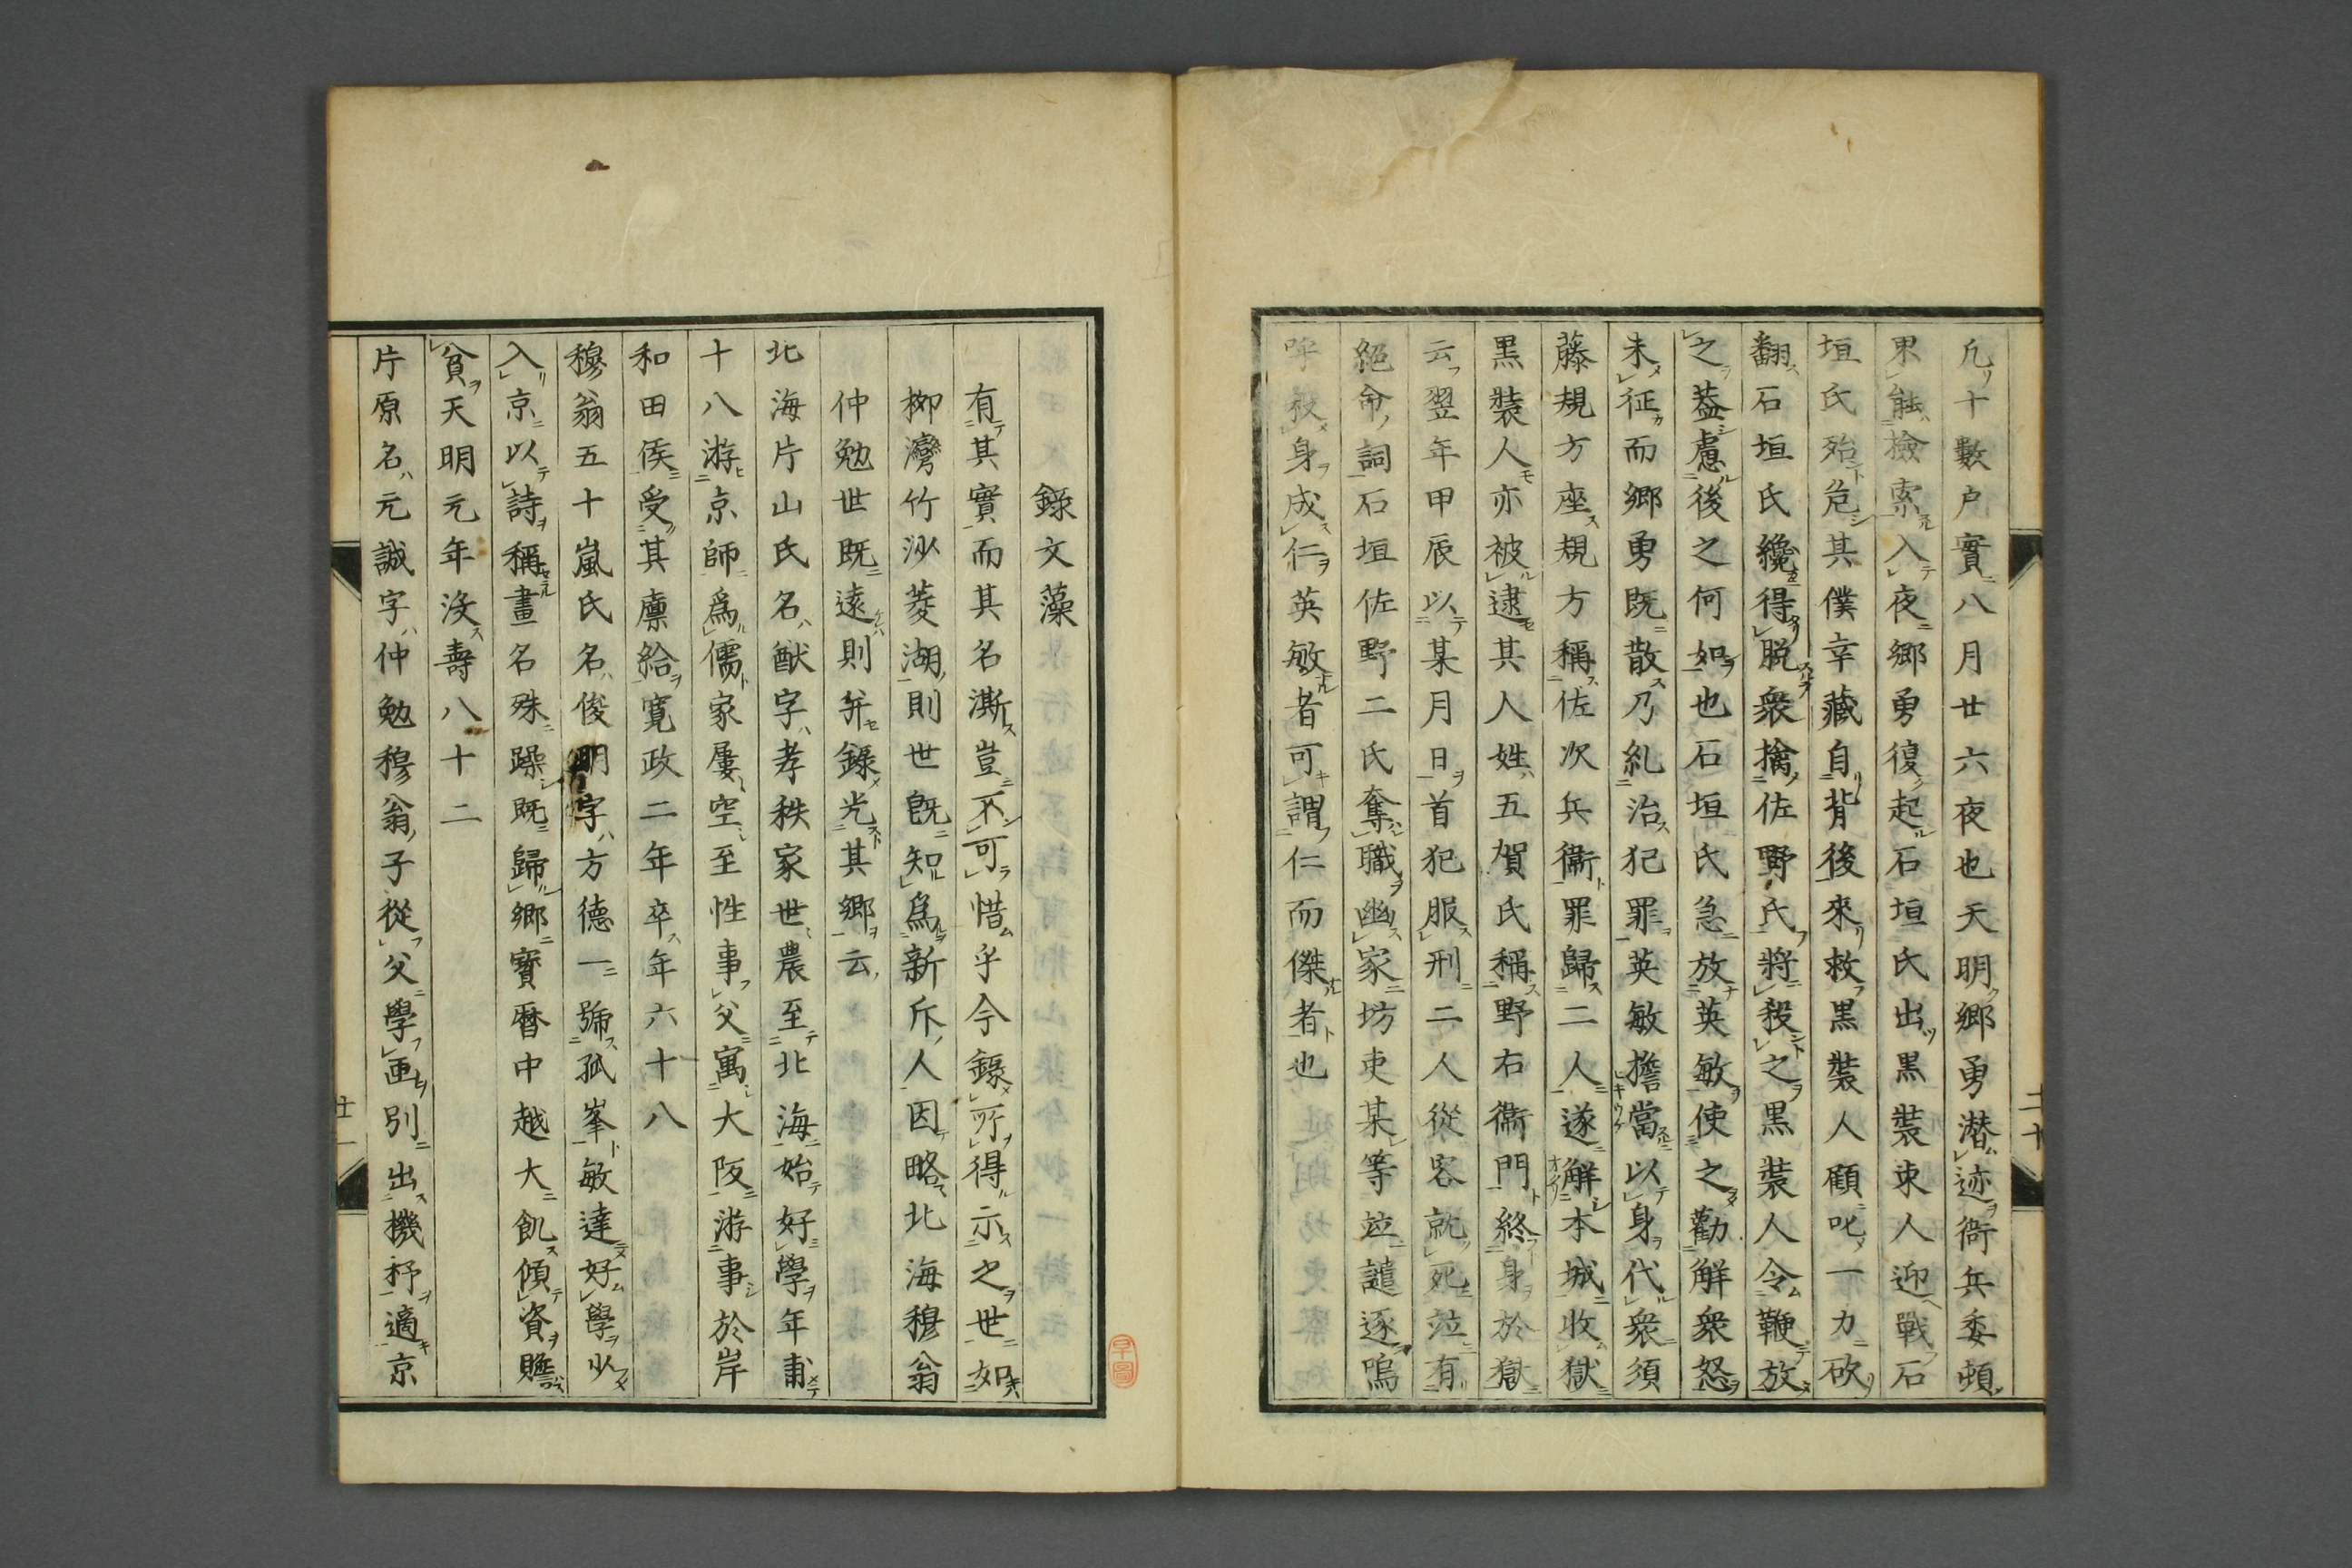 凢十數戶實八月廿六夜也天明郷勇潜迹衙兵委頓
果能檢索入夜郷勇復起石垣氏出黒裝束人迎戰石
垣氏殆危其僕幸藏自背後來救黒裝人顧叱一力砍
翻石垣氏纔得脱衆擒佐野氏將殺之黒裝人令鞭放
之葢慮後之何如也石垣氏急放英敏使之勸解衆怒
未征而郷勇既散乃糺治犯罪英敏擔當以身代衆須
藤規方座規方稱佐次兵衞罪歸二人遂解本城收獄
黒裝人亦被逮其人姓五賀氏稱野右衞門終身於獄
云翌年甲辰以某月日首犯服刑二人從容就死竝有
絕命詞石垣佐野二氏奪職幽家坊吏某等竝譴逐嗚
呼殺身成仁英敏者可謂仁而傑者也
二十
錄文藻
有其實而其名澌豈不可惜乎今錄所得示之世如
柳灣竹沙菱湖則世既知爲新斥人因略北海穆翁
仲勉世既遠則并錄光其郷云
北海片山氏名猷字孝秩家世農至北海始好學年甫
十八游京師爲儒家屢空至性事父寓大阪游事於岸
和田侯受其廪給寛政二年卒年六十八
穆翁五十嵐氏名俊明字方德一號孤峯敏達好學少
入京以詩稱畫名殊躁既歸郷寶暦中越大飢傾資贍
貧天明元年沒壽八十二
片原名元誠字仲勉穆翁子從父學画別出機杼適京
廿一